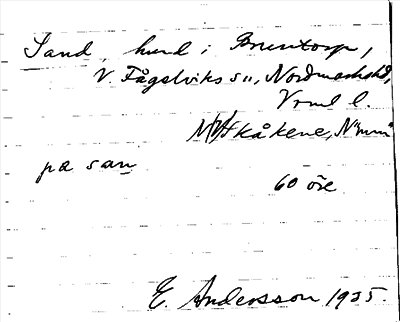 Sand, hund i Brustorp,
V Fågelviks sn, Nordmarkshd,
Vrml l.
kåkene, N
på san
60 öre
E. Andersson 1935.